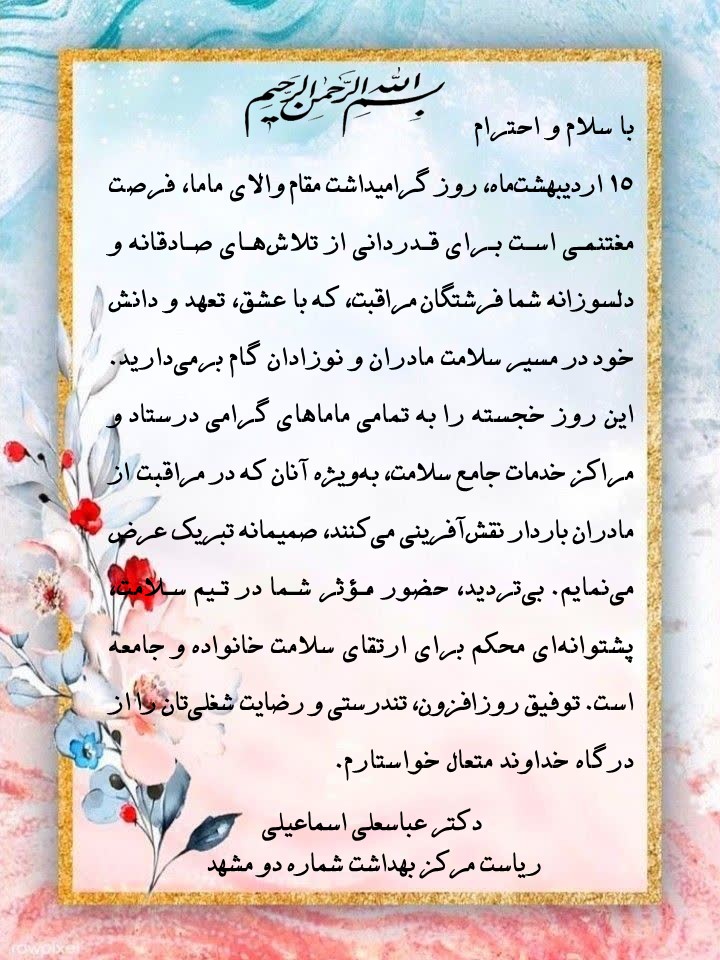 بسم الله الرحمن الرحیم
با سلام و احترام
۱۵ اردیبهشت‌ماه، روز گرامیداشت مقام والای ماما، فرصت
مغتنمی است برای قدردانی از تلاش‌های صادقانه و
دلسوزانه شما فرشتگان مراقبت، که با عشق، تعهد و دانش
خود در مسیر سلامت مادران و نوزادان گام برمی‌دارید.
این روز خجسته را به تمامی ماماهای گرامی درستاد و
مراکز خدمات جامع سلامت، به‌ویژه آنان که در مراقبت از
مادران باردار نقش‌آفرینی می‌کنند، صمیمانه تبریک عرض
می‌نمایم. بی‌تردید، حضور مؤثر شما در تیم سلامت،
پشتوانه‌ای محکم برای ارتقای سلامت خانواده و جامعه
است. توفیق روزافزون، تندرستی و رضایت شغلی‌تان را از
درگاه خداوند متعال خواستارم.
دکتر عباسعلی اسماعیلی
ریاست مرکز بهداشت شماره دو مشهد
rawpixel